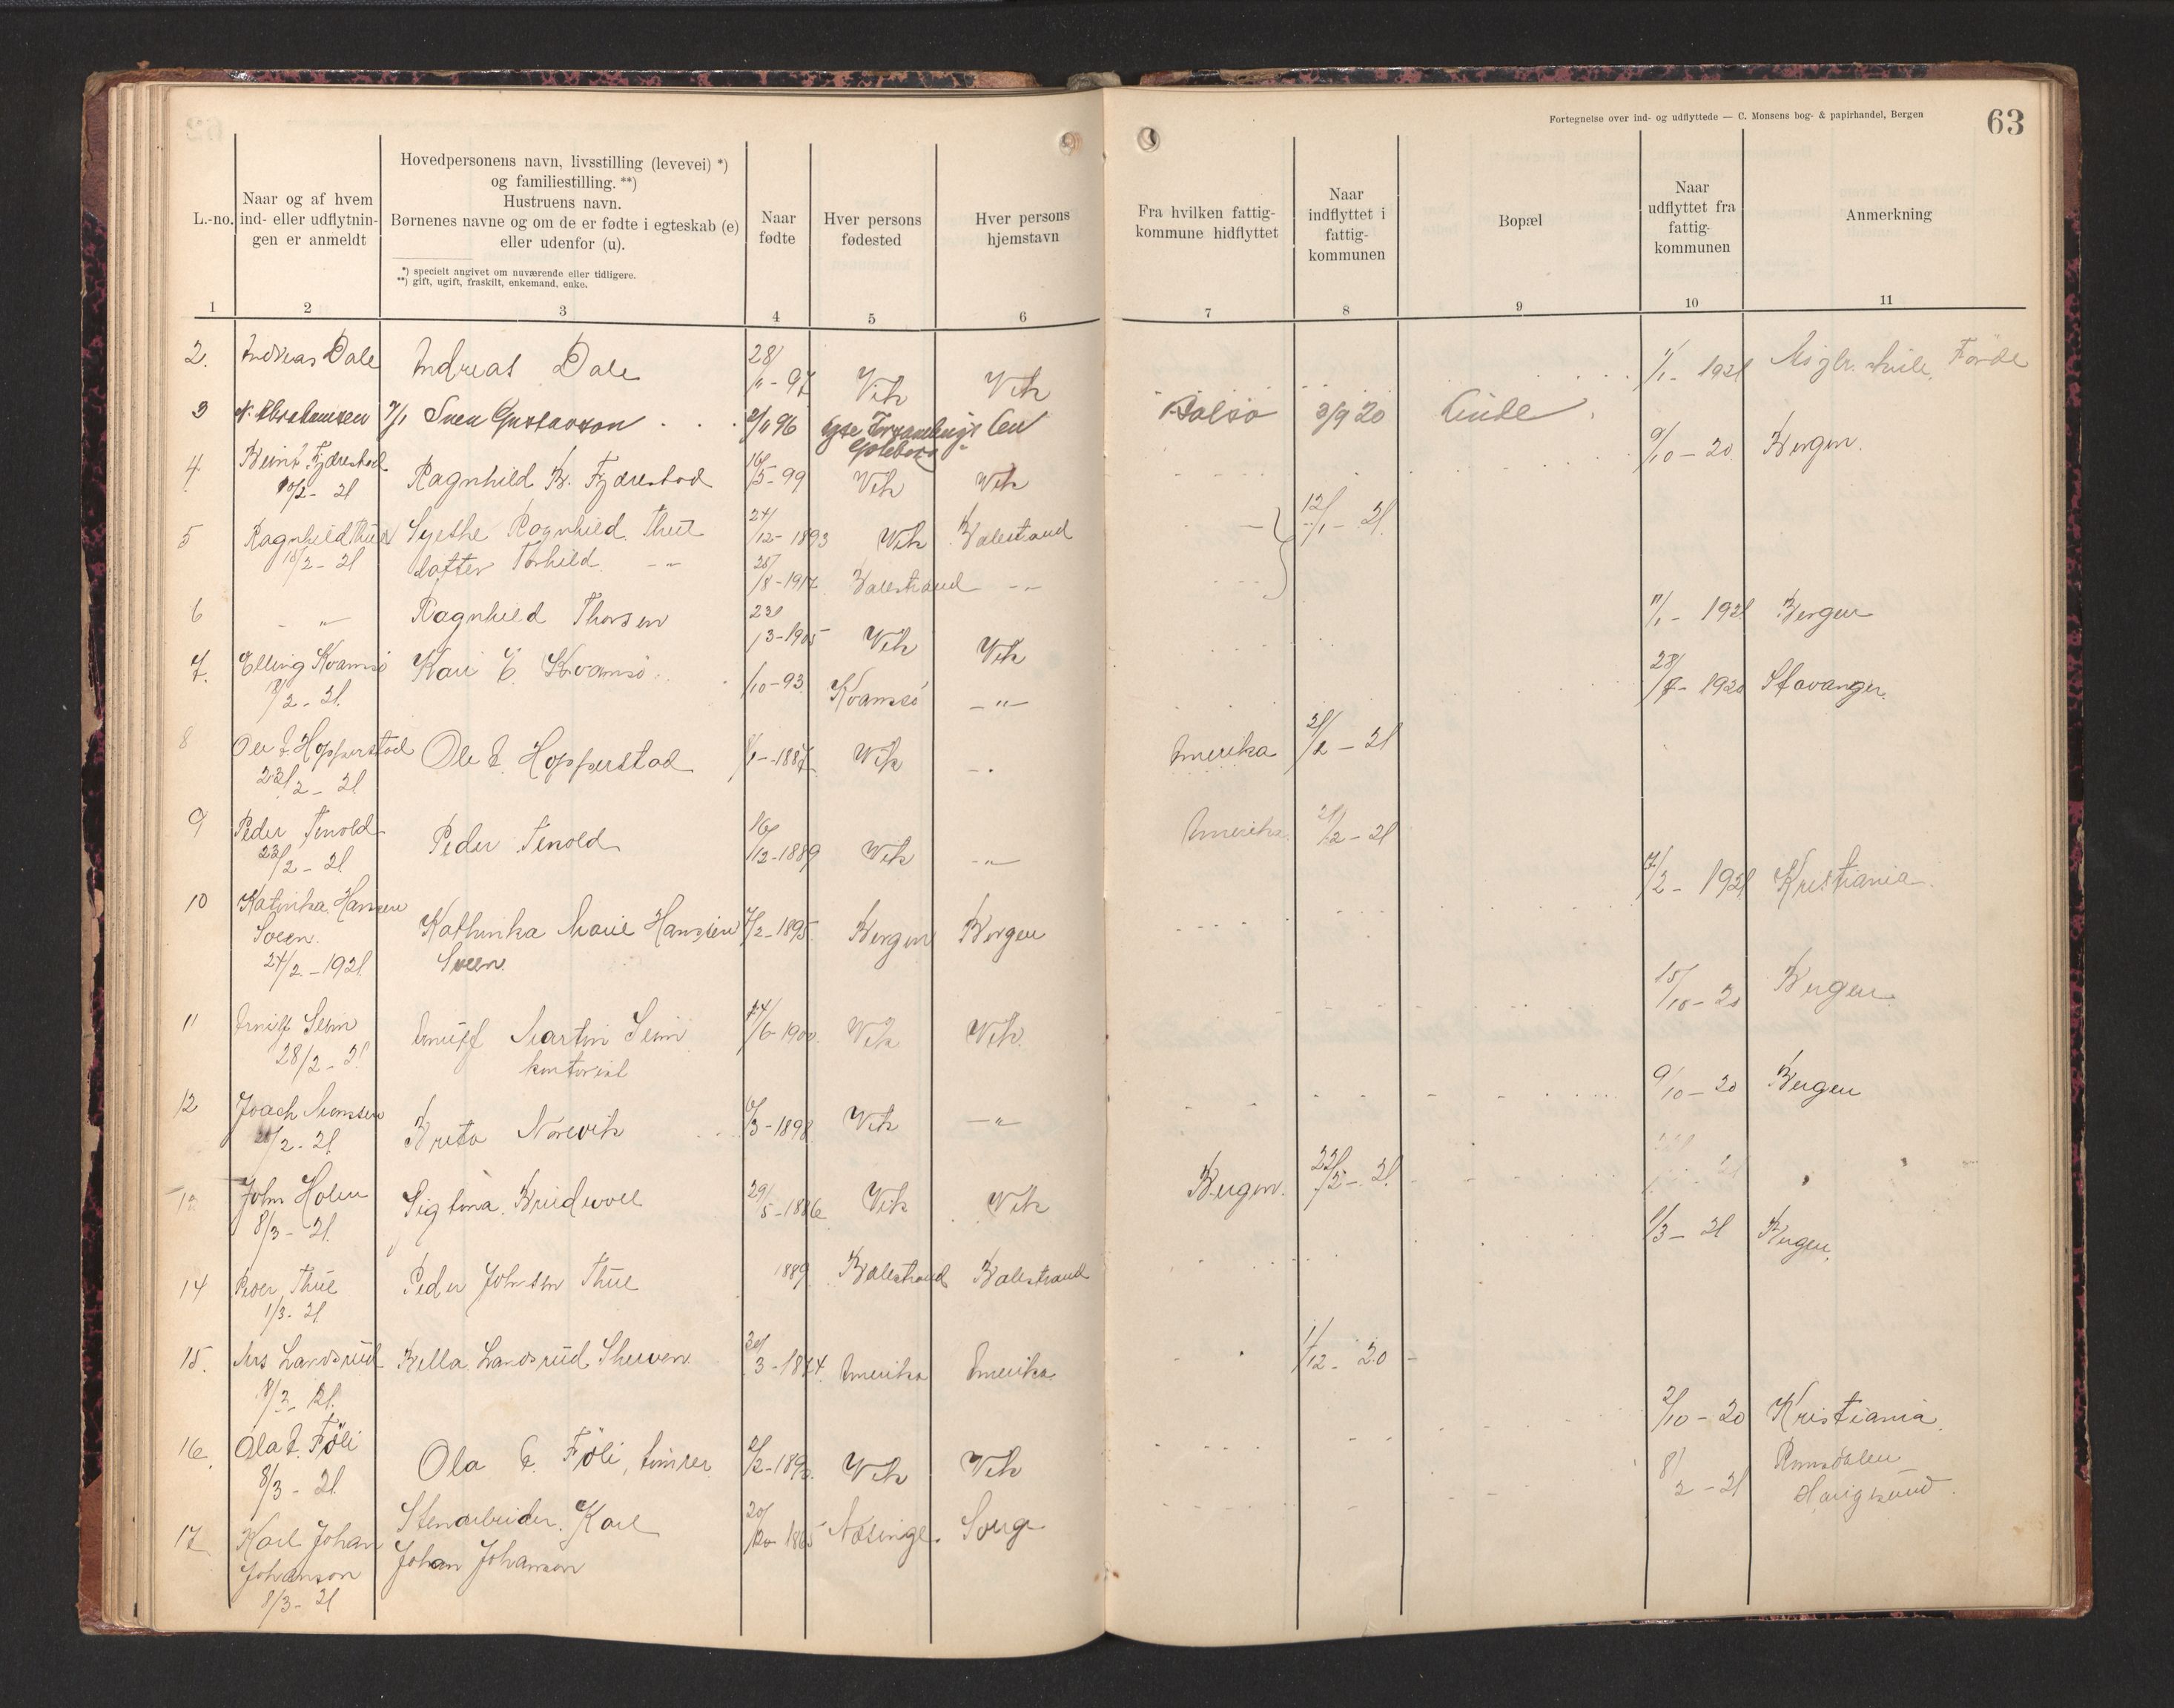 Fortegnelse over ind- og udflyttede — C. Monsens bog- & papirhandel, Bergen
63
L.-no.
Naar og af hvem
ind- eller udflytnin-
gen er anmeldt
Hovedpersonens navn, livsstilling (levevei) *)
og familiestilling. **)
Hustruens navn.
Børnenes navne og om de er fødte i egteskab (e)
eller udenfor (u).
*) specielt angivet om nuværende eller tidligere.
**) gift, ugift, fraskilt, enkemand, enke.
Naar
fødte
Hver persons
fødested
Hver persons
hjemstavn
Fra hvilken fattig-
kommune hidflyttet
Naar
indflyttet i
fattig-
kommunen
Bopæl
Naar
udflyttet fra
fattig-
kommunen
Anmerkning
1 2 3 4 5 6 7 8 9 10 11
2. Andreas Dale Andreas Dale 28/11-97 Vik Vik 1/1-1921 Förde
3 N. Abrahamsen 7/1 Sven Gustavson 2/11 96 Göteborg 3/9 20
4. Bernt Fjærestad Ragnhild B. Fjærestad 16/5-99 Vik Vik 9/10-20 Bergen.
10/2-21
5 Ragnhild Thue Syerske Ragnhild Thue 24/12-1893 Vik Balestrand 12/1-21
18/2-21 datter Torhild -"- 28/8-1917 Balestrand -"-
6 -"- Ragnhild Thorsen 23/3-1905 Vik Vik 11/1-1921 Bergen
7. Elling Kvamsö Kari E. Kvamsö /10-93 Kvamsö -"- 28/7-1920 Stavanger.
8/2-21.
8 Ole E. Hopperstad Ole E. Hopperstad 1/1-1887 Vik -"- Amerika 21/2-21
23/2-21
9 Peder Tenold Peder Tenold 16/12-1889 Vik -"- Amerika 21/2-21
23/2-21
10 Katinka Hansen Kathinka Marie Hansen 7/2-1895 Bergen Bergen 7/2-1921 Kristiania
Sveen. Sveen.
24/2-1921
11 Arnulf Seim Arnulf Martin Seim 24/6-1900 Vik Vik. 15/10-20 Bergen
28/2-21 kontorist
12 Joach Monsen Brita Norevik 6/3-1898 Vik -"- 9/10-20 Bergen
28/2-21
13 John Holen Sigtona Bridevoll 29/5-1886 Vik Vik Bergen. 22/2-21
8/3-21.
14 Roar Thue Peder Johnsen Thue 1889 Balestrand Balestrand 1/3-21 Bergen.
1/3-21
15. Mrs Landsrud Bella Landsrud Sherven 30/3-1874 Amerika Amerika 1/12-20
8/3-21.
16. Ola E. Föli Ola E. Föli, 2/2-1890 Vik Vik 2/10-20 Kristiania
8/3-21.
17 Karl Johan Stenarbeider. Karl 20/10-1865 Næsinge. 8/2-21 Romsdalen
Johanson Johan Johanson
8/3-21